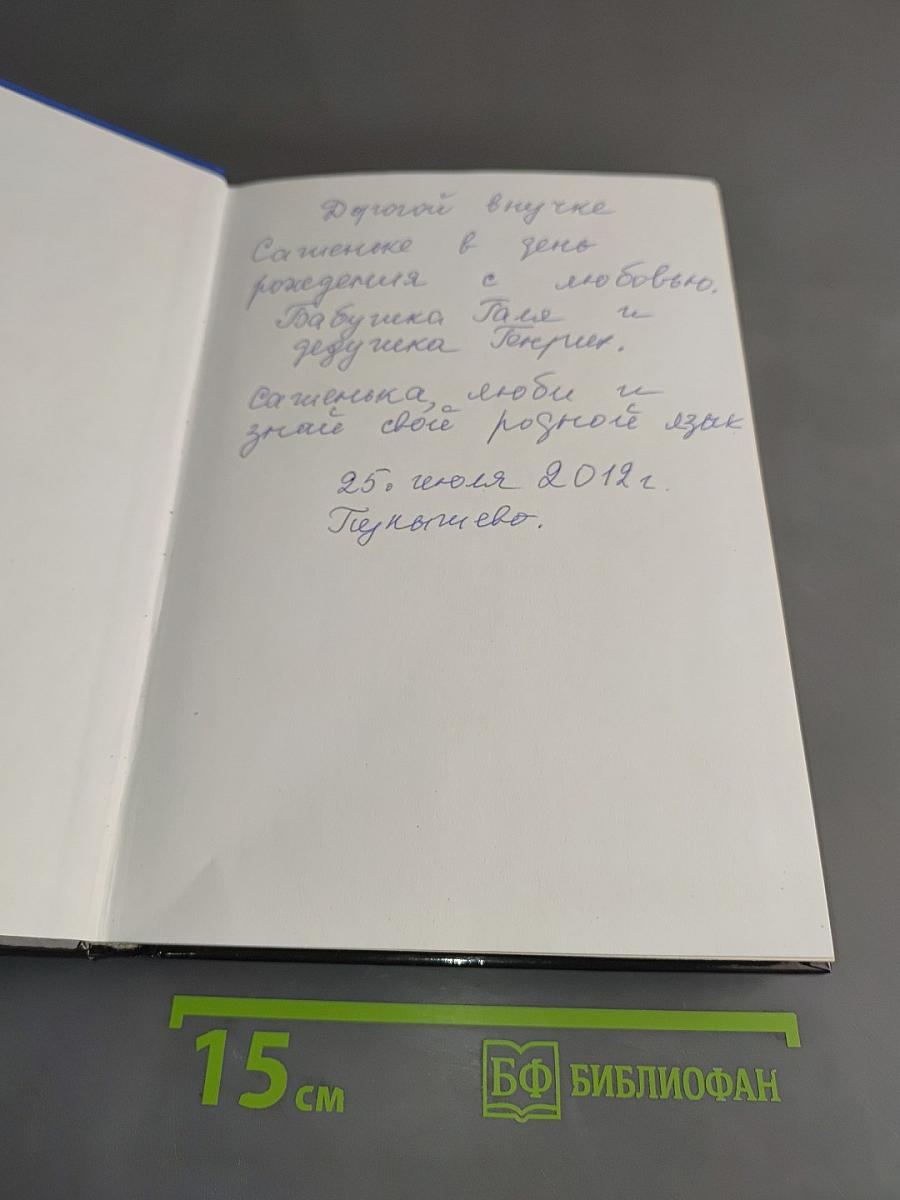 Дорогой внучке
Сашеньке в день
рождения с любовью.
Бабушка Галя и
дедушка Генрих.
Сашенька, люби и
знай свой родной язык
25. июля 2012 г.
15 см
БФ БИБЛИОФАН